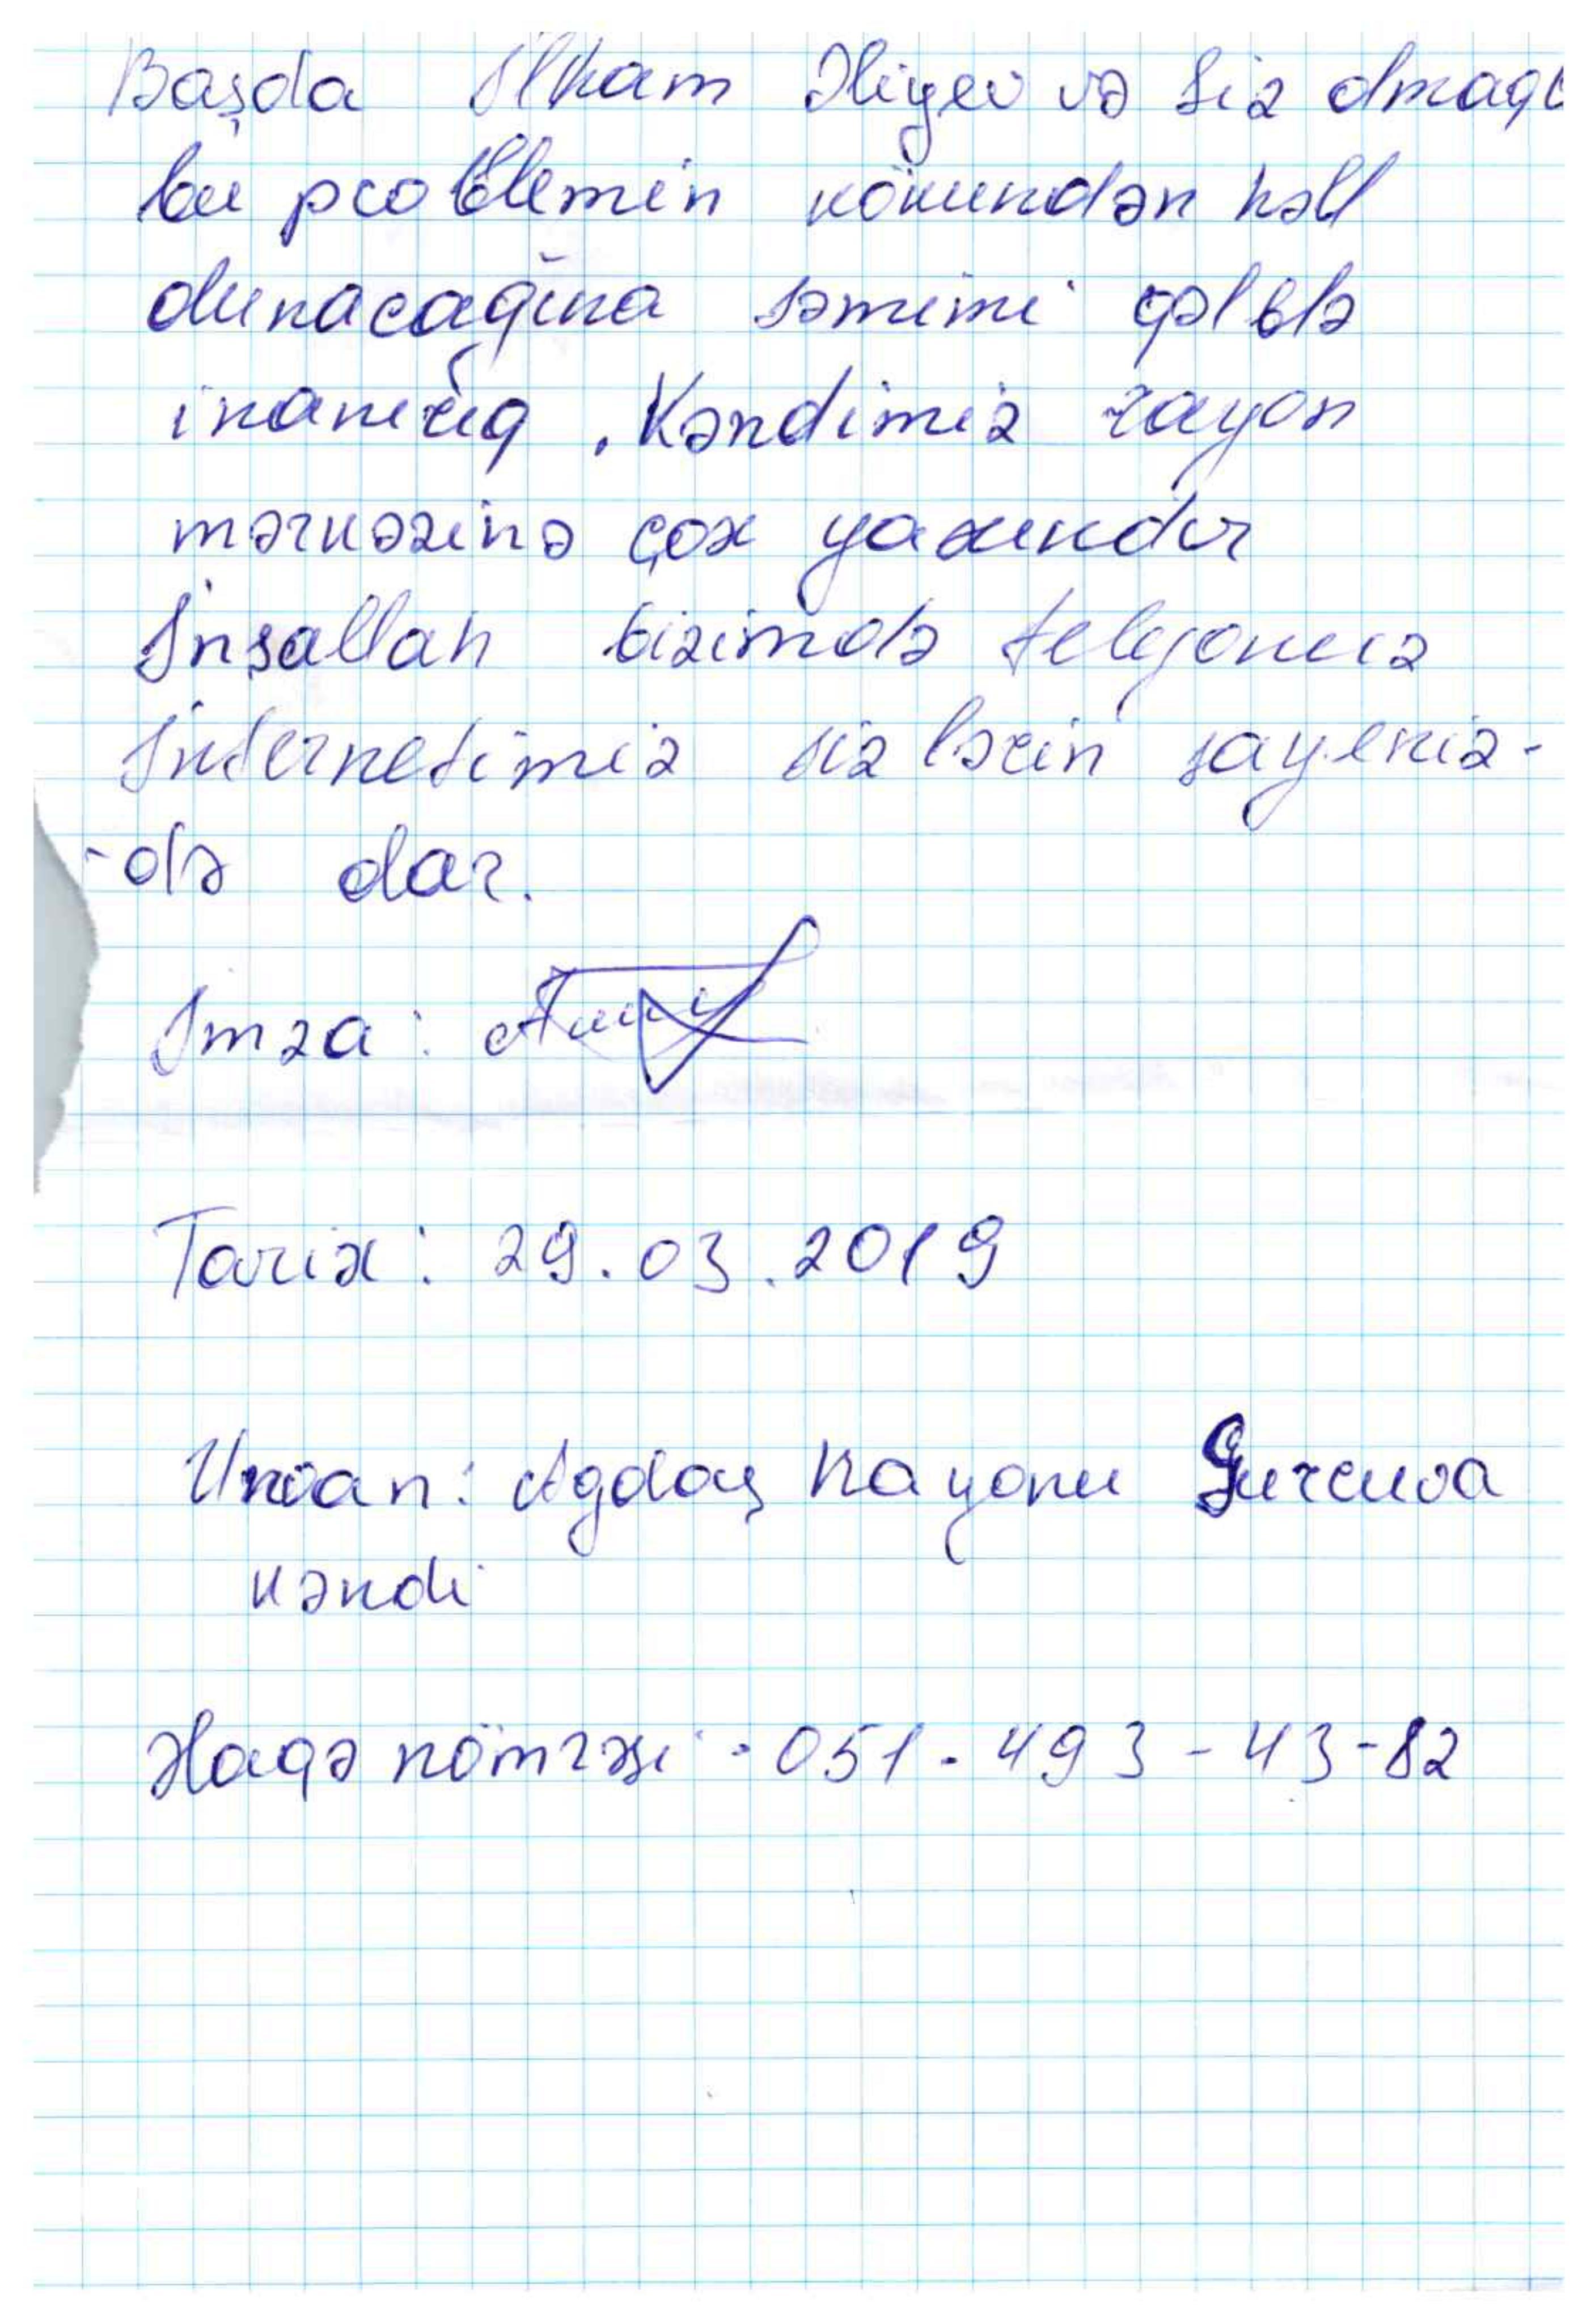 Başda İlham Əliyev və Siz olmaqla
bu problemin kökündən həll
olunacağına səmimi qəlblə
inanırıq. Kəndimiz rayon
mərkəzinə çox yaxındır
İnşallah bizimdə telefonuuz
İnternetimiz siz lərin sayəniz-
-də olar.
İmza:
Tarix: 29.03.2019
Ünvan: Agdaş Rayonu Gurcuva
kəndi
Əlaqə nömrəsi: 051-493-43-82